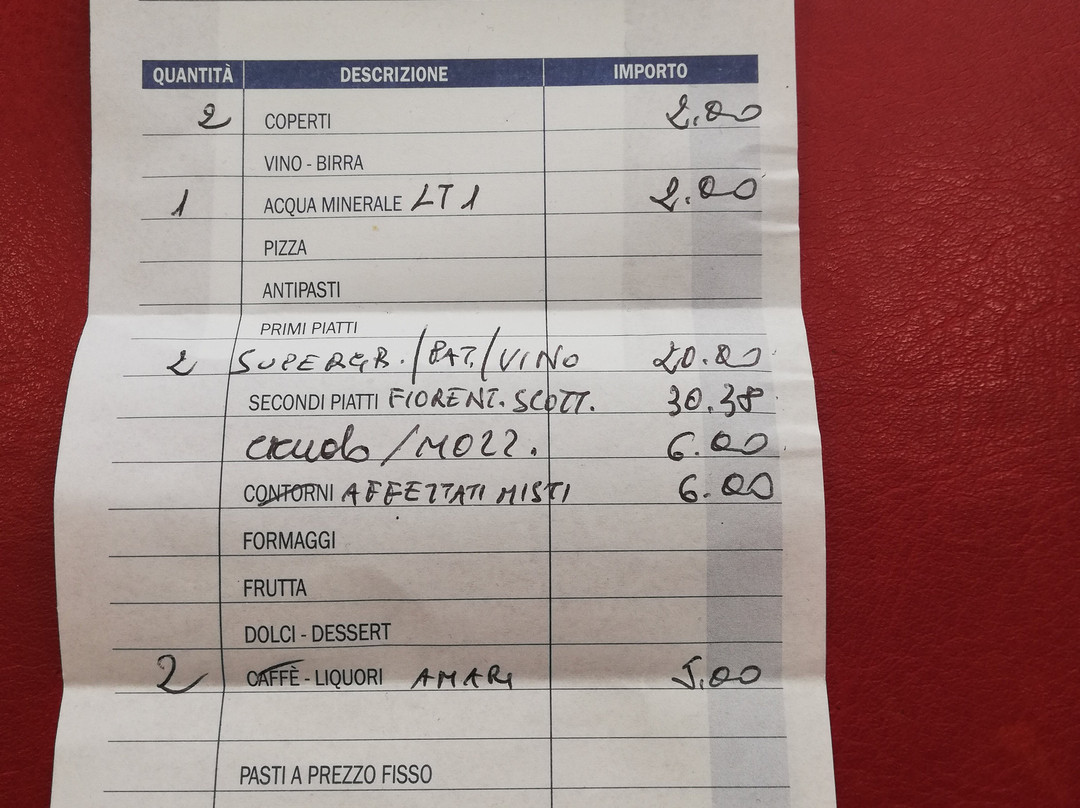 QUANTITÀ DESCRIZIONE IMPORTO
2 COPERTI 2.00
VINO - BIRRA
1 ACQUA MINERALE LT 1 2.00
PIZZA
ANTIPASTI
PRIMI PIATTI
2 SUPERGR. / PAT. / VINO 20.00
SECONDI PIATTI FIORENT. SCOTT. 30.38
CRUDO / MOZZ. 6.00
CONTORNI AFFETTATI MISTI 6.00
FORMAGGI
FRUTTA
DOLCI - DESSERT
2 CAFFÈ - LIQUORI AMARI 5.00
PASTI A PREZZO FISSO